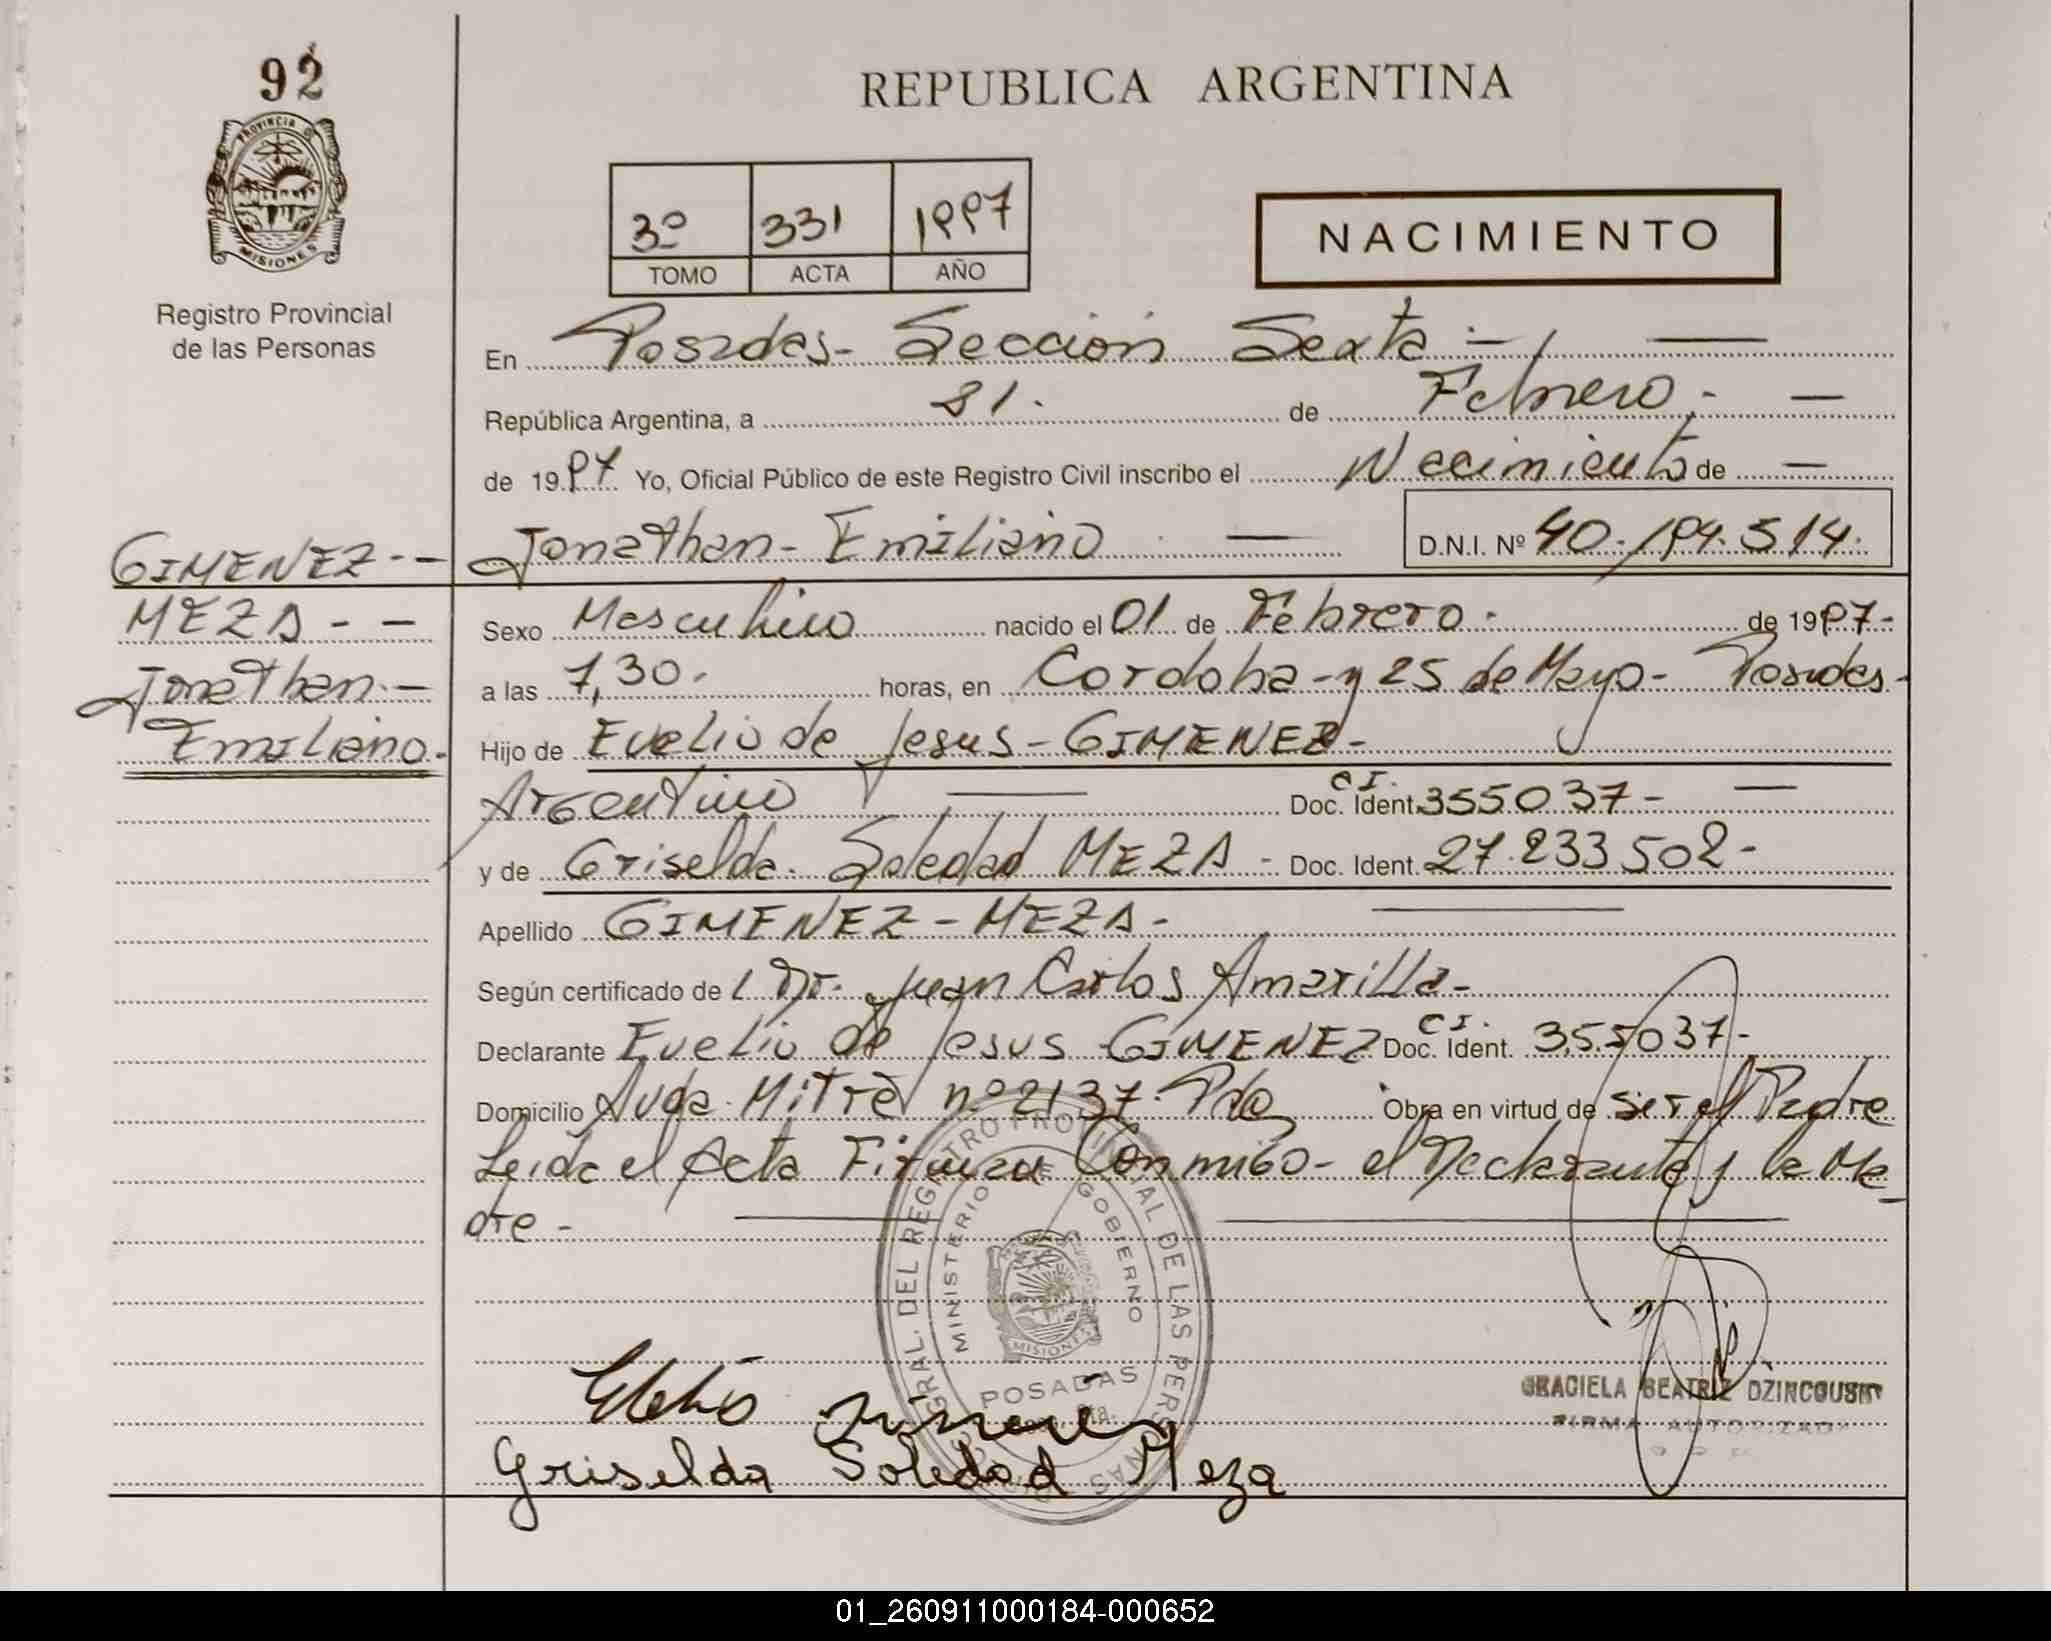 92
PROVINCIA DE
MISIONES
Registro Provincial
de las Personas
REPUBLICA ARGENTINA
3º 331 1997
TOMO ACTA AÑO
NACIMIENTO
En Posadas - Sección Sexta -
República Argentina, a 21. de Febrero. -
de 1997 Yo, Oficial Público de este Registro Civil inscribo el Nacimiento de -
GIMENEZ - - Jonathan - Emiliano - D.N.I. Nº 40.194.514.
MEZA - - Sexo Masculino nacido el 01 de Febrero. de 1997-
Jonathan. - a las 7,30. horas, en Cordoba - y 25 de Mayo - Posadas -
Emiliano. Hijo de Evelio de Jesus - GIMENEZ -
Argentino - Doc. Ident. C.I. 355037 - -
y de Griselda. Soledad MEZA - Doc. Ident. 27.233.502 -
Apellido GIMENEZ - MEZA -
Según certificado de l Dr. Juan Carlos Amarilla -
Declarante Evelio de Jesus GIMENEZ Doc. Ident. C.I. 355037 -
Domicilio Avda. Mitre nº 2137. Pdas Obra en virtud de ser el Padre
Leida el Acta Firman Conmigo - el Declarante y la Ma_
dre -
GRAL. DEL REGISTRO PROVINCIAL DE LAS PERSONAS
MINISTERIO DE GOBIERNO
MISIONES
POSADAS
Gimenez
Griselda Soledad Meza
GRACIELA BEATRIZ DZINCOUSKY
FIRMA AUTORIZADA
01_260911000184-000652